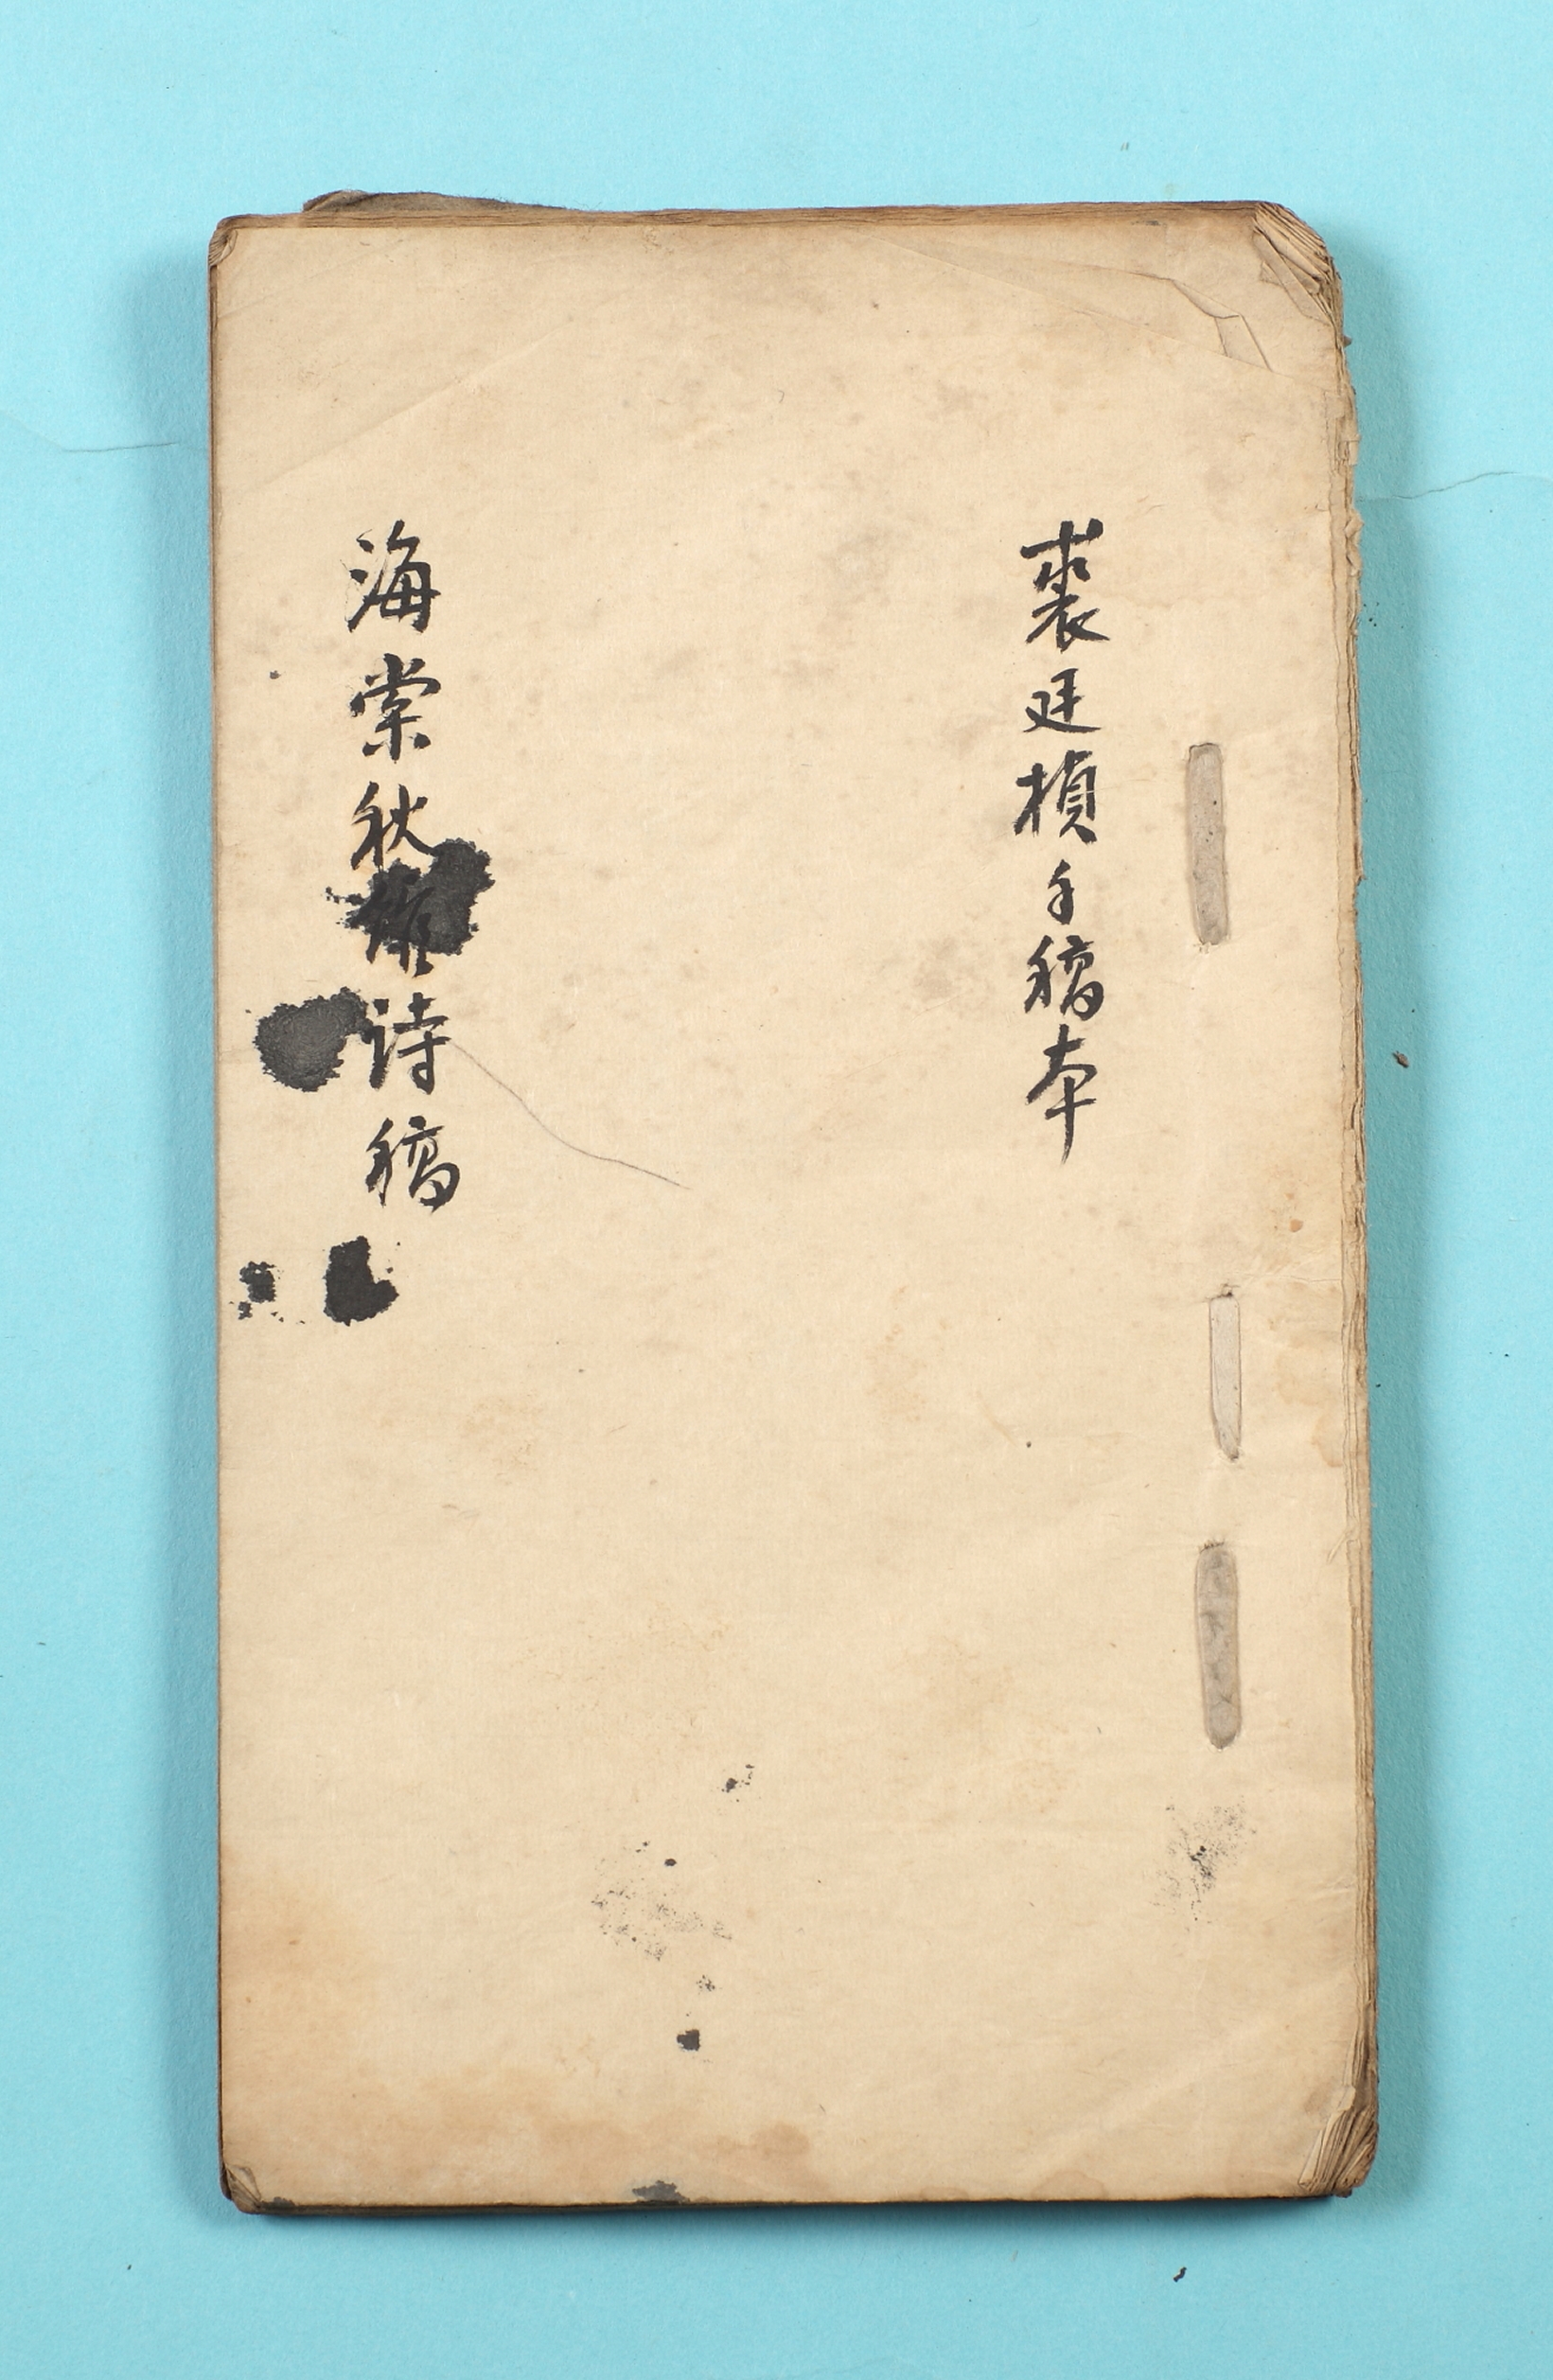 裘廷楨手稿本
海棠秋诗稿